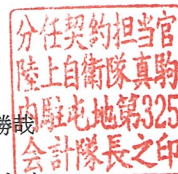 分任契約担当官
陸上自衛隊真駒
内駐屯地第325
会計隊長之印
勝哉